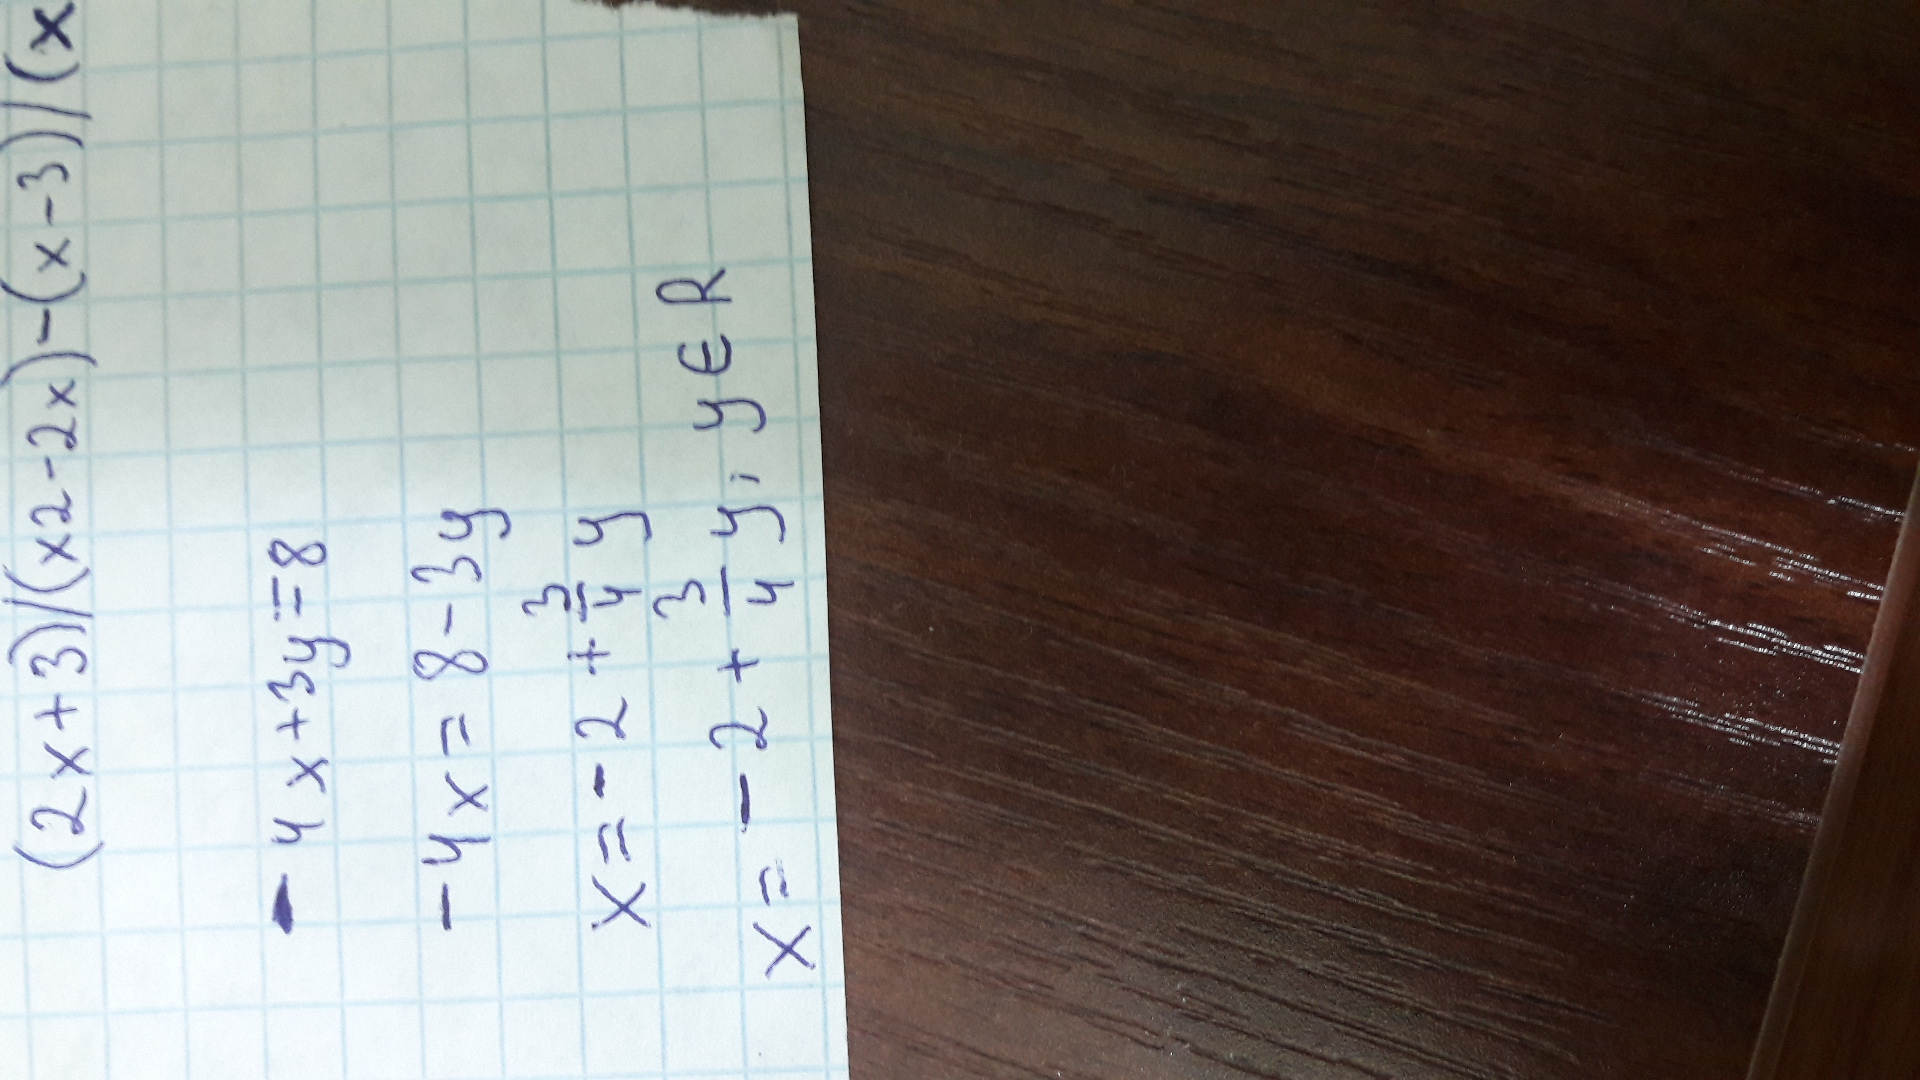 (2x+3)/(x2-2x)-(x-3)/(x
-4x+3y=8
-4x=8-3y
x=-2+3/4y
x=-2+3/4y, y∈R